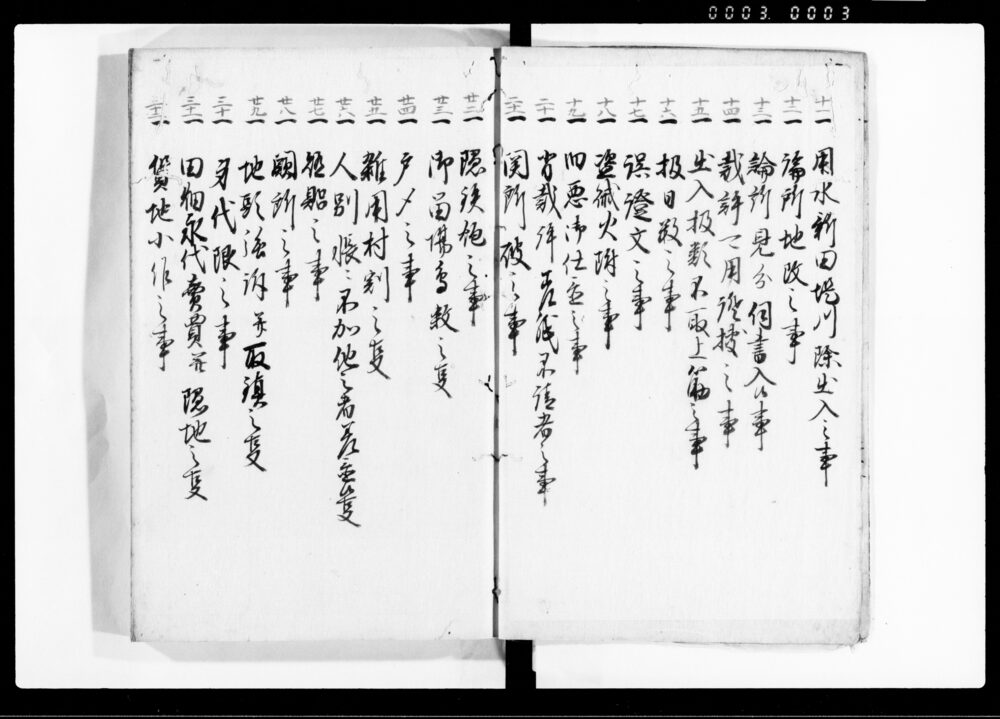 0003 0003
十一一 用水新田堤川除出入之事
十二一 論所地改之事
十三一 論所見分伺書入候事
十四一 裁許可用證拠之事
十五一 出入扱願不取上筋之事
十六一 扱日数之事
十七一 誤證文之事
十八一 盗賊火附之事
十九一 旧悪御仕置之事
二十一 背裁許差紙不請者之事
廿一一 関所破之事
廿二一 隠鉄炮之事
廿三一 御留場鳥殺之事
廿四一 戸〆之事
廿五一 雑用村割之事
廿六一 人別帳ニ不加他之者差置候事
廿七一 賄賂之事
廿八一 闕所之事
廿九一 地頭強訴并取鎮之事
三十一 身代限之事
三十一一 田畑永代賣買并隠地之事
三十二一 質地小作之事